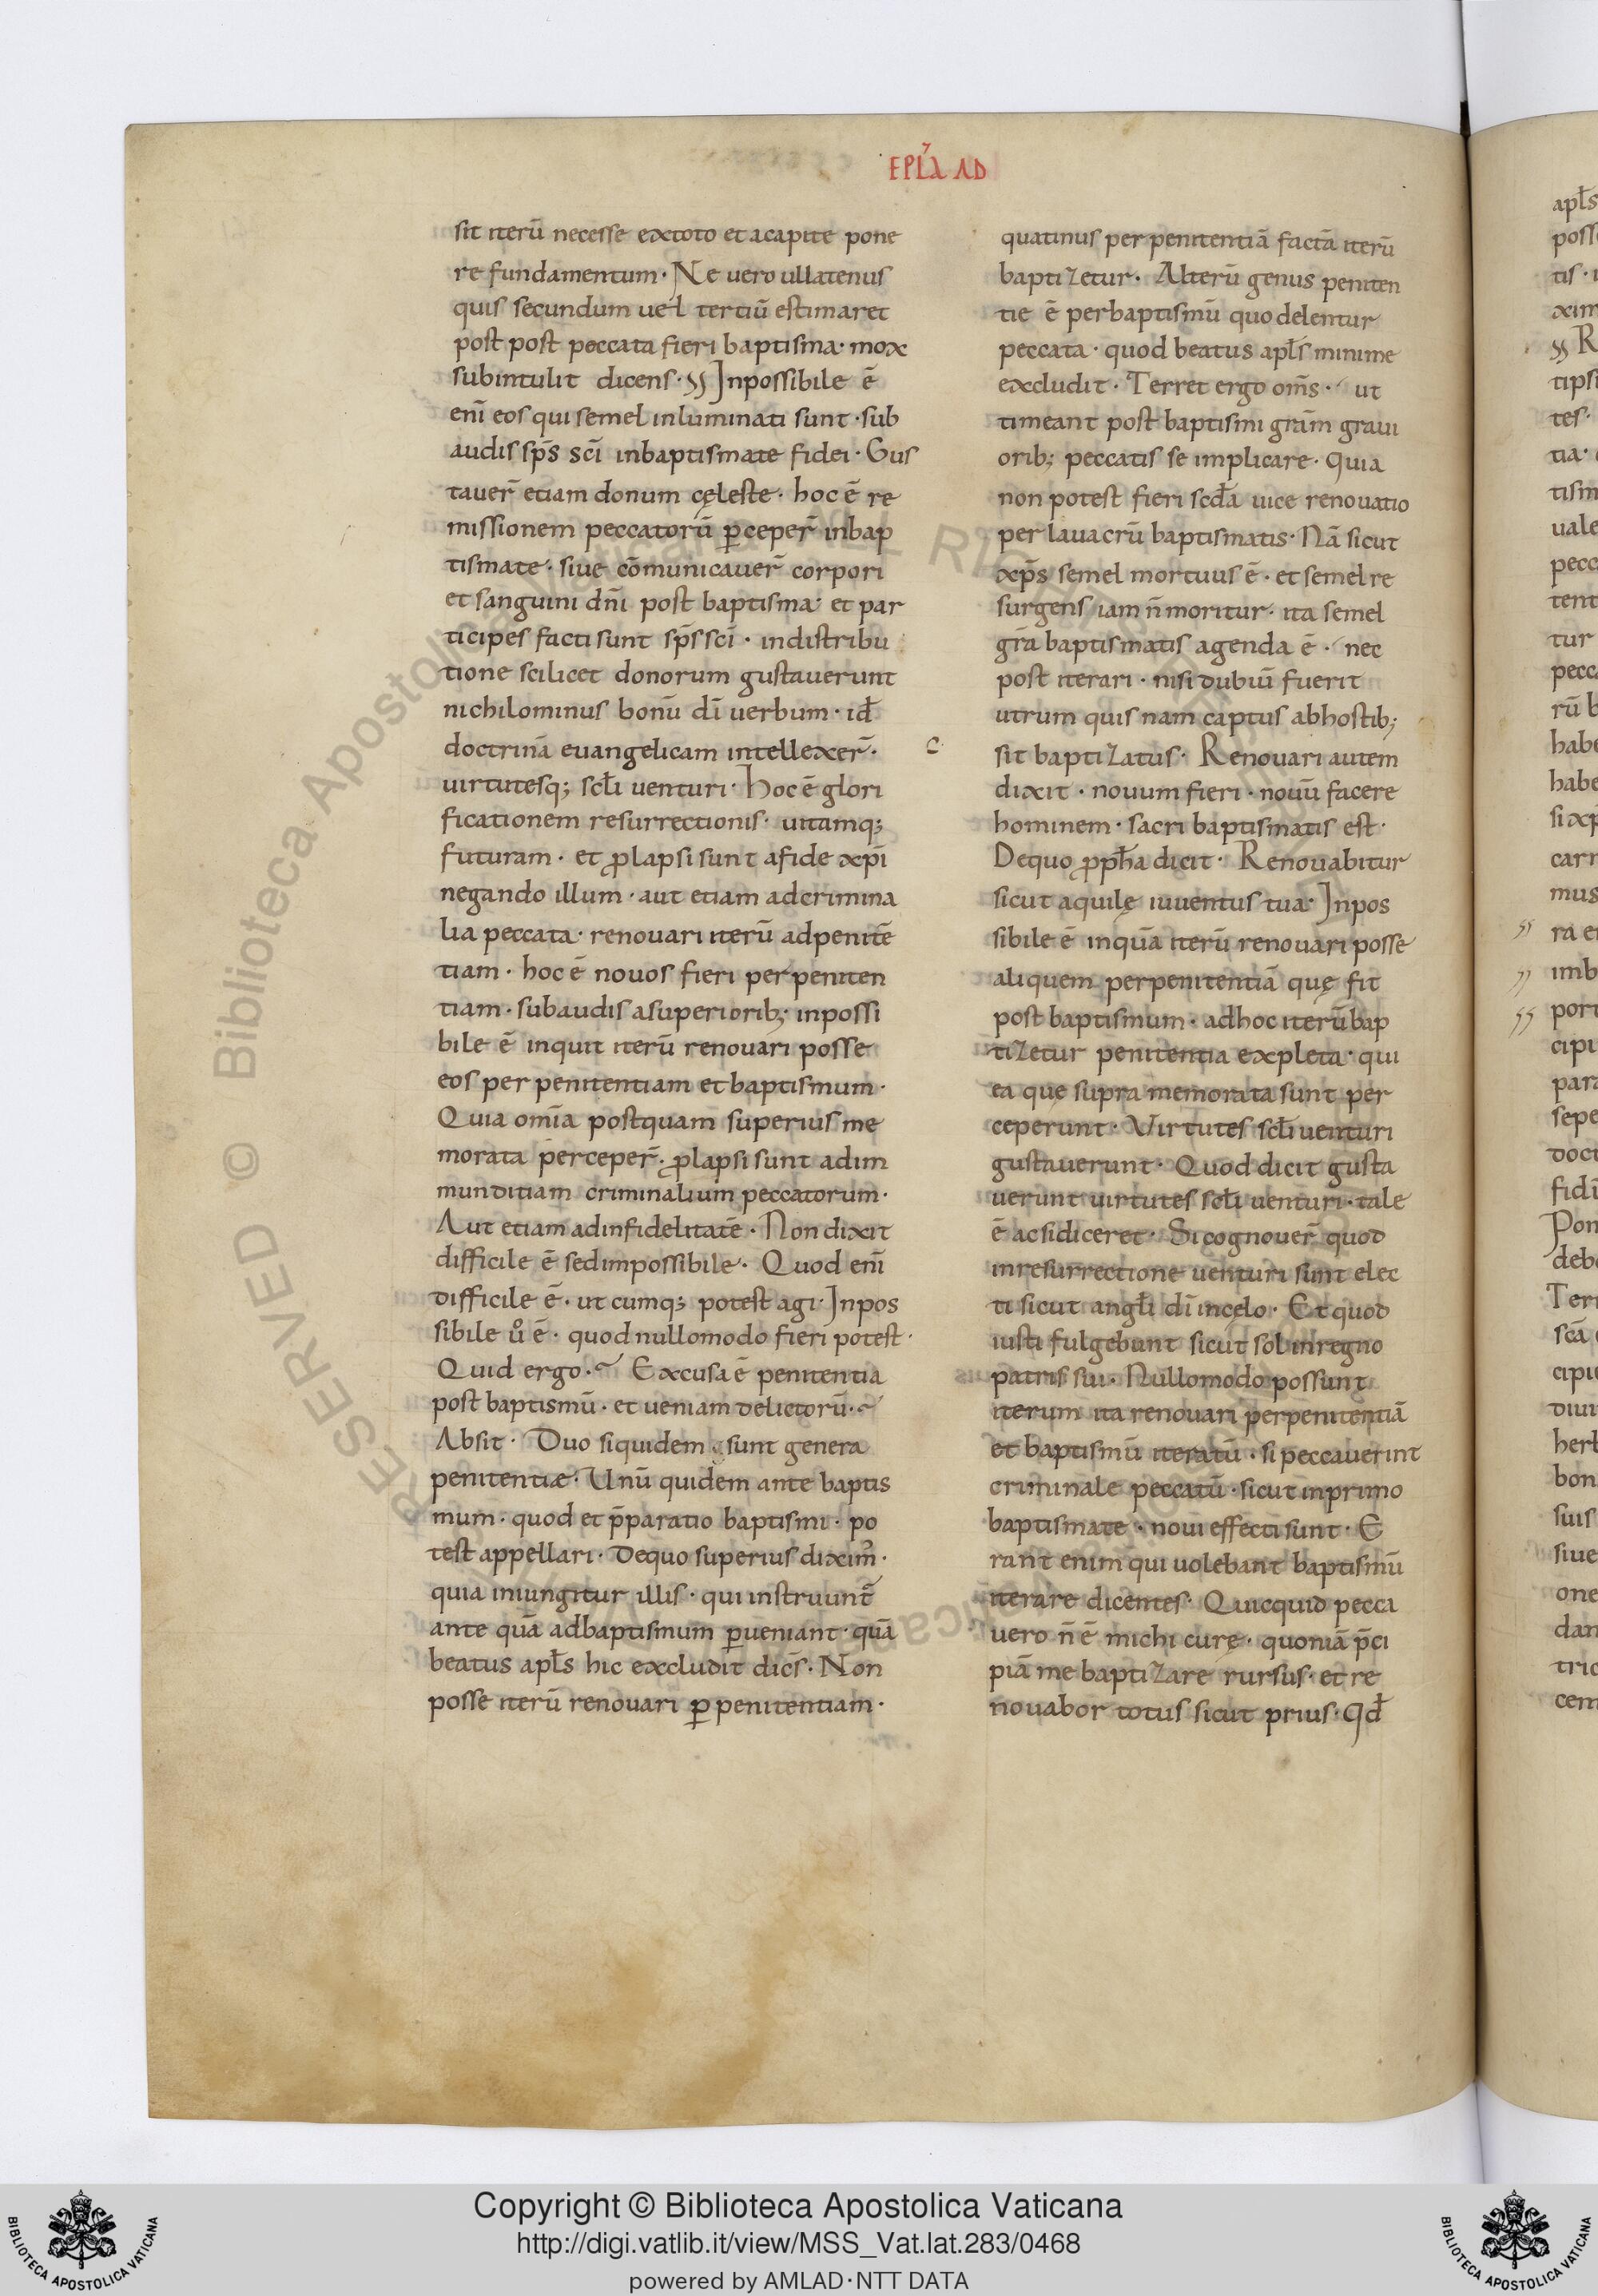 EPL̃A AD
sit iterū necesse extoto et acapite pone
re fundamentum · Ne uero ullatenus
quis secundum uel tertiū estimaret
post post peccata fieri baptisma · mox
subintulit dicens · Inpossibile ē
enī eos qui semel inluminati sunt · sub
audis sp̄s sc̄i inbaptismate fidei · Gus
tauer̄ etiam donum cęleste · hoc ē re
missionem peccatorū ꝑceper̄ inbap
tismate · siue cōmunicauer̄ corpori
et sanguini dn̄i post baptisma · et par
ticipes facti sunt sp̄s sc̄i · indistribu
tione scilicet donorum gustauerunt
nichilominus bonū dī uerbum · id̄
doctrinā euangelicam intellexer̄ ·
uirtutesq; scl̄i uenturi · Hoc ē glori
ficationem resurrectionis · uitamq;
futuram · et ꝓlapsi sunt afide xp̄i
negando illum · aut etiam adcrimina
lia peccata · renouari iterū adpenitē
tiam · hoc ē nouos fieri per peniten
tiam · subaudis asuperiorib; · inpossi
bile ē inquit iterū renouari posse
eos per penitentiam et baptismum ·
Quia om̄ia postquam superius me
morata perceper̄ · ꝓlapsi sunt adim
munditiam criminalium peccatorum ·
Aut etiam adinfidelitatē · Non dixit
difficile ē sed impossibile · Quod enī
difficile ē · ut cumq; potest agi · Inpos
sibile uͦ ē · quod nullomodo fieri potest ·
Quid ergo · Excusa ē penitentia
post baptismū · et ueniam delictorū ·
Absit · Duo siquidem sunt genera
penitentiæ · Unū quidem ante baptis
mum · quod et p̄paratio baptismi · po
test appellari · Dequo superius dixim᾽ ·
quia iniungitur illis · qui instruunt᷑
ante quā adbaptismum ꝑueniant · quā
beatus apl̄s hic excludit dic̄s · Non
posse iterū renouari ꝑ penitentiam ·
quatinus per penitentiā factā iterū
baptizetur · Alterū genus peniten
tie ē perbaptismū quo delentur
peccata · quod beatus apl̄s minime
excludit · Terret ergo om̄s · ut
timeant post baptismi grām graui
orib; peccatis se implicare · Quia
non potest fieri scd̄a uice renouatio
per lauacrū baptismatis · Nā sicut
xp̄s semel mortuus ē · et semel re
surgens iam n̄ moritur · ita semel
gr̄a baptismatis agenda ē · nec
post iterari · nisi dubiū fuerit
utrum quis nam captus abhostib;
c
sit baptizatus · Renouari autem
dixit · nouum fieri · nouū facere
hominem · sacri baptismatis est ·
Dequo ꝓph̄a dicit · Renouabitur
sicut aquilę iuuentus tua · Inpos
sibile ē inquā iterū renouari posse
aliquem perpenitentiā quę fit
post baptismum · adhoc iterū bap
tizetur penitentia expleta · qui
ea que supra memorata sunt per
ceperunt · Virtutes scl̄i uenturi
gustauerunt · Quod dicit gusta
uerunt uirtutes scl̄i uenturi · tale
ē ac si diceret · Si cognouer̄ quod
inresurrectione uenturi sunt elec
ti sicut angl̄i dī incęlo · Et quod
iusti fulgebunt sicut sol inregno
patris sui · Nullomodo possunt
iterum ita renouari perpenitentiā
et baptismū iteratū · si peccauerint
criminale peccatū · sicut inprimo
baptismate · noui effecti sunt · E
rant enim qui uolebant baptismū
iterare dicentes · Quicquid pecca
uero n̄ ē michi curę · quoniā p̄ci
piā me baptizare rursus · et re
nouabor totus sicut prius · Qd̄
Copyright © Biblioteca Apostolica Vaticana
http://digi.vatlib.it/view/MSS_Vat.lat.283/0468
powered by AMLAD·NTT DATA